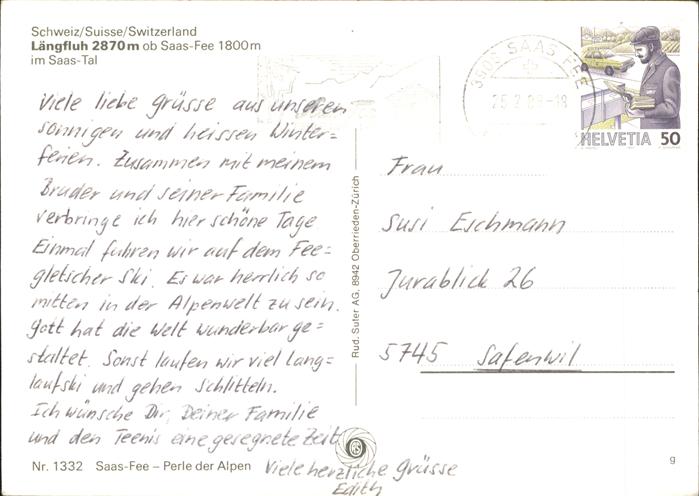 Schweiz/Suisse/Switzerland
Längfluh 2870m ob Saas-Fee 1800m
im Saas-Tal
Viele liebe Grüsse aus unseren
sonnigen und heissen Winter=
ferien. Zusammen mit meinem
Bruder und seiner Familie
verbringe ich hier schöne Tage
Einmal fuhren wir auf dem Fee=
gletscher Ski. Es war herrlich so
mitten in der Alpenwelt zu sein.
Gott hat die Welt wunderbar ge=
staltet. Sonst laufen wir viel Lang=
laufski und gehen schlitteln.
Ich wünsche Dir, Deiner Familie
und den Teenis eine gesegnete Zeit
Viele herzliche Grüsse
Edith
Nr. 1332 Saas-Fee – Perle der Alpen
Rud. Suter AG, 8942 Oberrieden-Zürich
3906 SAAS-FEE
HELVETIA 50
Frau
Susi Eschmann
Jurablick 26
5745 Safenwil
g